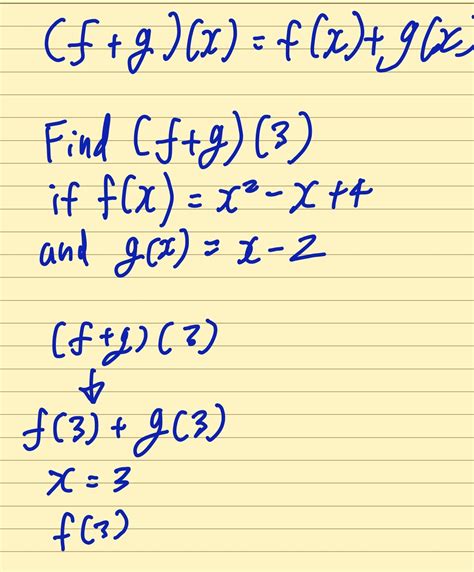 (f+g)(x) = f(x)+g(x)
Find (f+g)(3)
if f(x) = x²-x+4
and g(x) = x-2
(f+g)(3)
↓
f(3) + g(3)
x = 3
f(3)